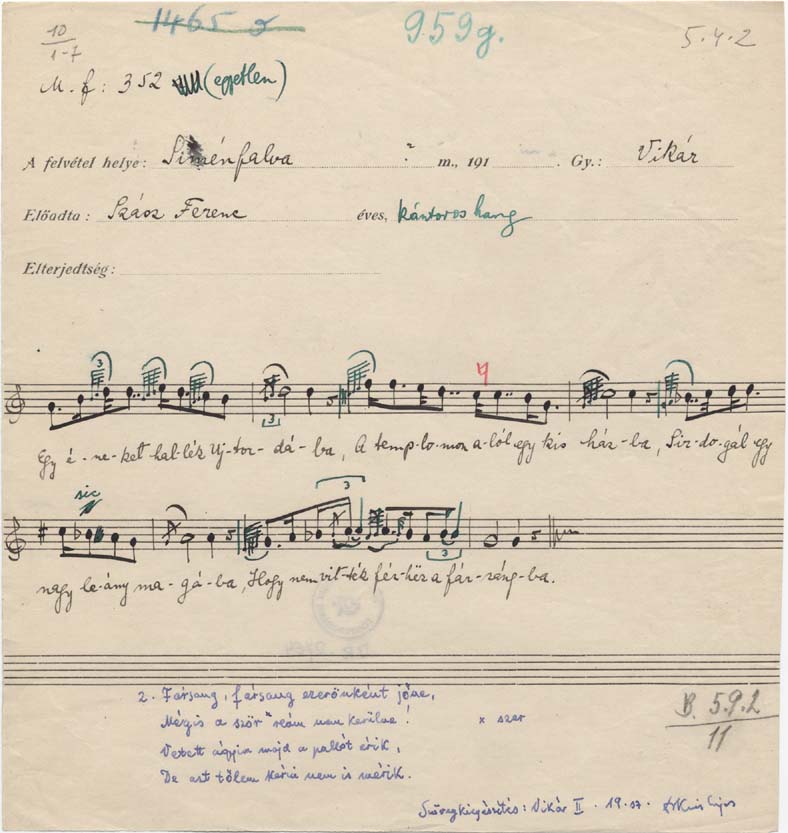 10
1-7
1465
959g.
5.4.2
M. f: 352 (egyetlen)
A felvétel helye: Siménfalva ? m., 191 . Gy.: Vikár
Előadta: Szász Ferenc éves, kántoros hang
Elterjedtség:
3
3
Egy é-ne-ket hal-lék Uj-tor-dá-ba, A temp-lo-mon a-lól egy kis ház-ba, Sir-do-gál egy
sic
3
3
nagy le-ány ma-gá-ba, Hogy nem vit-ték fér-hëz a fár-sáng-ba.
2. Farsang, farsang ezerönként jőne,
Mégis a ször x reám nem kerülne! x szer
Vetett ágyim majd a pallót érik,
De azt tőlem kérni nem is mérik.
B. 5.9.2
11
Szövegkiegészítés: Vikár II. 19.